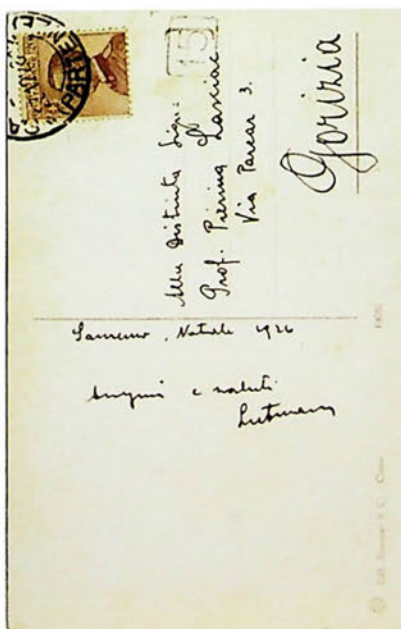 PARTEN
15
Alla distinta Sig.
Prof. Pierina Lasciac
Via Parcar 3.
Gorizia
Sanremo, Natale 1926
Auguri e saluti